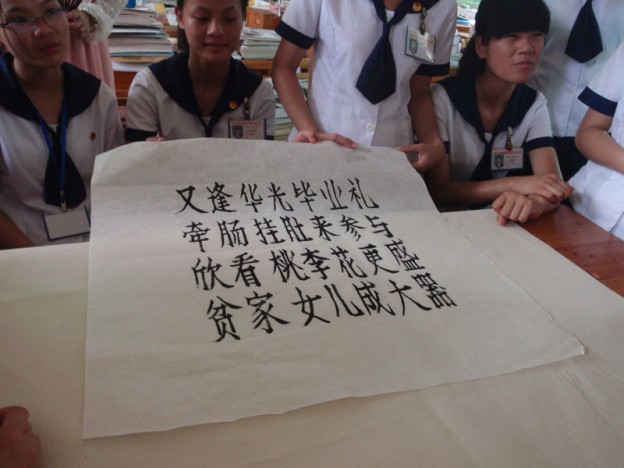 又逢华光毕业礼
牵肠挂肚来参与
欣看桃李花更盛
贫家女儿成大器